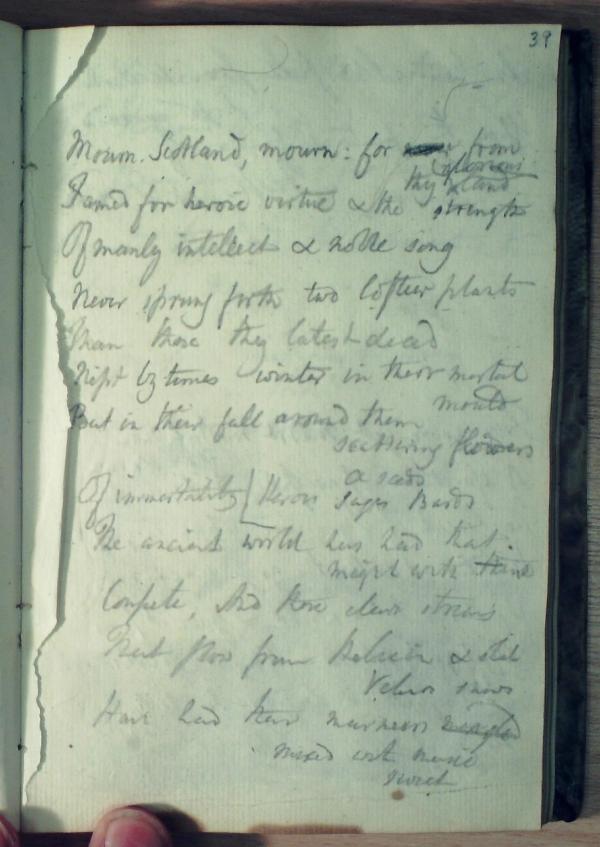 39
Mourn Scotland, mourn: for from
thy glorious land
Famed for heroic virtue & the strength
Of manly intellect & noble song
Never sprung forth two loftier plants
Than those thy latest dead
Nipt by times winter in their mortal
mould
But in their fall around them
scattering flowers
& seeds
Of immortality Heroes Sages Bards
The ancient world has had that
might with thine
Compete, And those clear streams
That flow from and old
snows
Have had their murmurs mingled
mixed with music
sweet